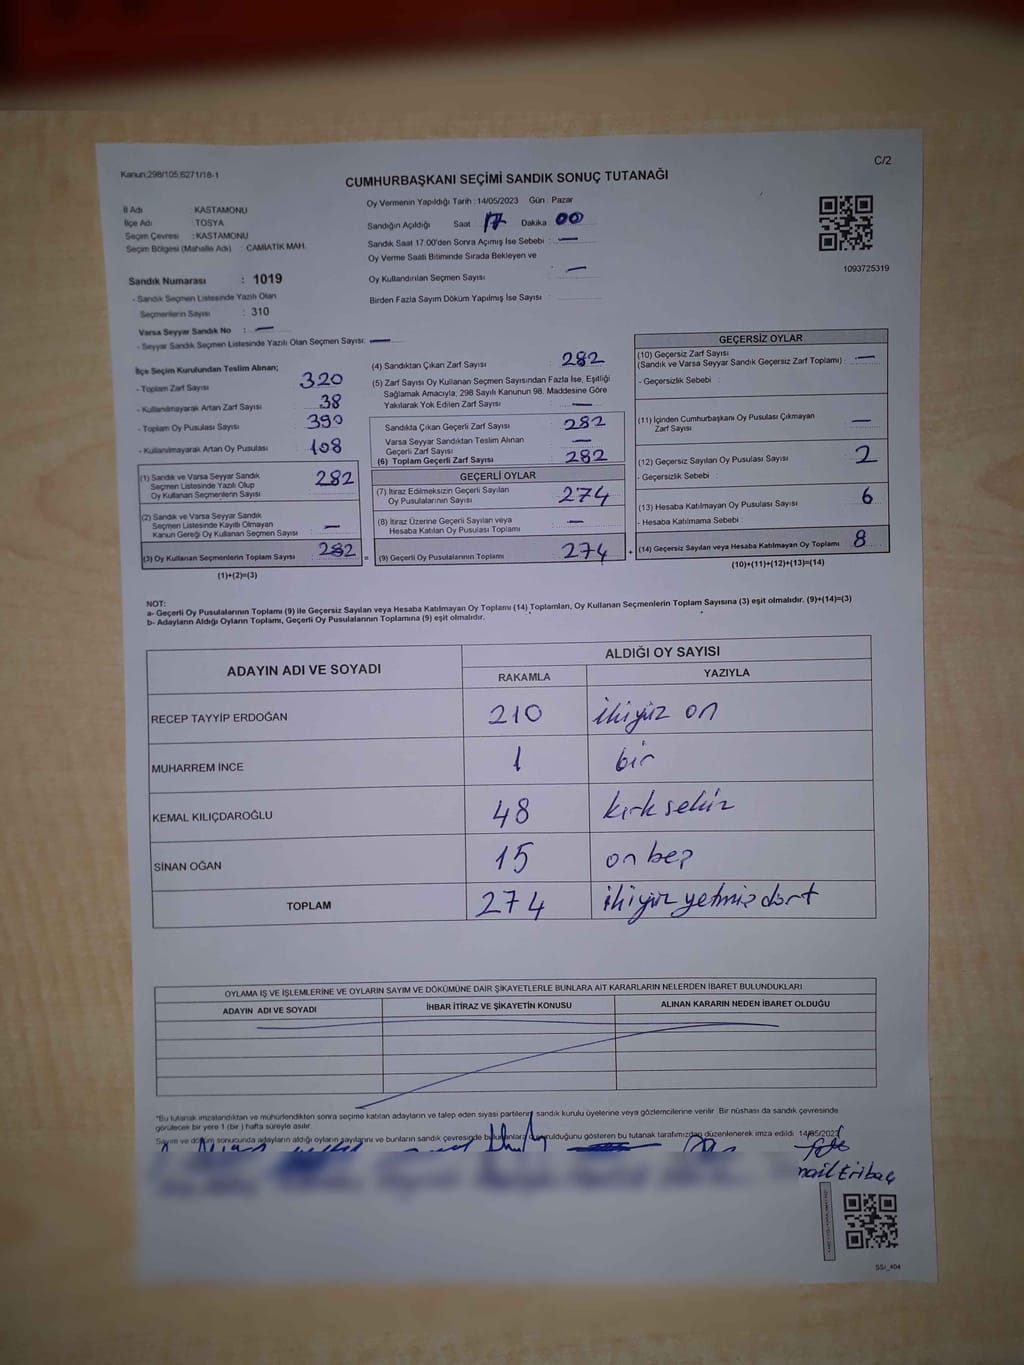 Kanun:298/105;6271/18-1
C/2
CUMHURBAŞKANI SEÇİMİ SANDIK SONUÇ TUTANAĞI
İl Adı : KASTAMONU
İlçe Adı : TOSYA
Seçim Çevresi : KASTAMONU
Seçim Bölgesi (Mahalle Adı) : CAMİATİK MAH.
Sandık Numarası : 1019
- Sandık Seçmen Listesinde Yazılı Olan
Seçmenlerin Sayısı : 310
Varsa Seyyar Sandık No : —
- Seyyar Sandık Seçmen Listesinde Yazılı Olan Seçmen Sayısı: —
Oy Vermenin Yapıldığı Tarih : 14/05/2023 Gün : Pazar
Sandığın Açıldığı Saat 17 Dakika 00
Sandık Saat 17.00'den Sonra Açımış İse Sebebi : —
Oy Verme Saati Bitiminde Sırada Bekleyen ve
Oy Kullandırılan Seçmen Sayısı : —
Birden Fazla Sayım Döküm Yapılmış İse Sayısı :
1093725319
İlçe Seçim Kurulundan Teslim Alınan;
- Toplam Zarf Sayısı : 320
- Kullanılmayarak Artan Zarf Sayısı : 38
- Toplam Oy Pusulası Sayısı : 390
- Kullanılmayarak Artan Oy Pusulası : 108
(1) Sandık ve Varsa Seyyar Sandık
Seçmen Listesinde Yazılı Olup
Oy Kullanan Seçmenlerin Sayısı : 282
(2) Sandık ve Varsa Seyyar Sandık
Seçmen Listesinde Kayıtlı Olmayan
Kanun Gereği Oy Kullanan Seçmen Sayısı : —
(3) Oy Kullanan Seçmenlerin Toplam Sayısı : 282 =
(1)+(2)=(3)
(4) Sandıktan Çıkan Zarf Sayısı : 282
(5) Zarf Sayısı Oy Kullanan Seçmen Sayısından Fazla İse, Eşitliği
Sağlamak Amacıyla; 298 Sayılı Kanunun 98. Maddesine Göre
Yakılarak Yok Edilen Zarf Sayısı : —
Sandıkta Çıkan Geçerli Zarf Sayısı : 282
Varsa Seyyar Sandıktan Teslim Alınan
Geçerli Zarf Sayısı : —
(6) Toplam Geçerli Zarf Sayısı : 282
GEÇERLİ OYLAR
(7) İtiraz Edilmeksizin Geçerli Sayılan
Oy Pusulalarının Sayısı : 274
(8) İtiraz Üzerine Geçerli Sayılan veya
Hesaba Katılan Oy Pusulası Toplamı : —
(9) Geçerli Oy Pusulalarının Toplamı : 274 +
GEÇERSİZ OYLAR
(10) Geçersiz Zarf Sayısı
(Sandık ve Varsa Seyyar Sandık Geçersiz Zarf Toplamı) : —
- Geçersizlik Sebebi :
(11) İçinden Cumhurbaşkanı Oy Pusulası Çıkmayan
Zarf Sayısı : —
(12) Geçersiz Sayılan Oy Pusulası Sayısı : 2
- Geçersizlik Sebebi :
(13) Hesaba Katılmayan Oy Pusulası Sayısı : 6
- Hesaba Katılmama Sebebi :
(14) Geçersiz Sayılan veya Hesaba Katılmayan Oy Toplamı : 8
(10)+(11)+(12)+(13)=(14)
NOT:
a- Geçerli Oy Pusulalarının Toplamı (9) ile Geçersiz Sayılan veya Hesaba Katılmayan Oy Toplamı (14) Toplamları, Oy Kullanan Seçmenlerin Toplam Sayısına (3) eşit olmalıdır. (9)+(14)=(3)
b- Adayların Aldığı Oyların Toplamı, Geçerli Oy Pusulalarının Toplamına (9) eşit olmalıdır.
ADAYIN ADI VE SOYADI ALDIĞI OY SAYISI
RAKAMLA YAZIYLA
RECEP TAYYİP ERDOĞAN 210 ikiyüz on
MUHARREM İNCE 1 bir
KEMAL KILIÇDAROĞLU 48 kırk sekiz
SİNAN OĞAN 15 on beş
TOPLAM 274 ikiyüz yetmiş dört
OYLAMA İŞ VE İŞLEMLERİNE VE OYLARIN SAYIM VE DÖKÜMÜNE DAİR ŞİKAYETLERLE BUNLARA AİT KARARLARIN NELERDEN İBARET BULUNDUKLARI
ADAYIN ADI VE SOYADI İHBAR İTİRAZ VE ŞİKAYETİN KONUSU ALINAN KARARIN NEDEN İBARET OLDUĞU
*Bu tutanak imzalandıktan ve mühürlendikten sonra seçime katılan adayların ve talep eden siyasi partilerin sandık kurulu üyelerine veya gözlemcilerine verilir. Bir nüshası da sandık çevresinde
görülecek bir yere 1 (bir) hafta süreyle asılır.
Sayım ve döküm sonucunda adayların aldığı oyların sayılarını ve bunların sandık çevresinde bulunanlara duyurulduğunu gösteren bu tutanak tarafımızdan düzenlenerek imza edildi. 14/05/2023
nail Eribaç
SSİ_404